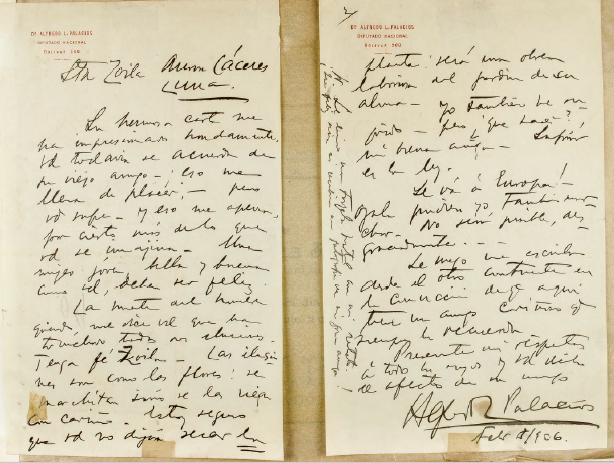 Dr ALFREDO L. PALACIOS
DIPUTADO NACIONAL
Bolivar 260
Sta Zoila Aurora Cáceres
Lima.
Su hermosa carta me
ha impresionado hondamente.
Vd todavia se acuerda de
su viejo amigo – eso me
llena de placér; – pero
vd sufre – y eso me apena,
por cierto más de lo que
vd se imajina – Una
mujer jóven bella y buena
como Vd, debia ser feliz.
La muerte del hombre
querido, me dice vd que ha
tronchado todas sus ilusiones.
Tenga fé Zoila – Las ilusio
nes son como las flores: se
marchitan sino se las riega
con cariño. Estoy seguro
que vd no dejará secar la
2
Dr ALFREDO L. PALACIOS
DIPUTADO NACIONAL
Bolivar 260
planta: será una obra
laboriosa del jardin de su
alma – yo tambien he su
frido – pero ¿que hacer?,
mi buena amiga – Sufrir
es la ley.
Se vá á Europa!
Ojalá pudiera yo tambien
. No será posible, des
graciadamente. – –
Le ruego me escriba
desde el otro continente en
la de que aqui
tiene un amigo cariñoso que
siempre la recuerda
Presente mis respetos
á todos los suyos y vd reciba
el afecto de su amigo
Alfredo L Palacios
Febr 8/906.